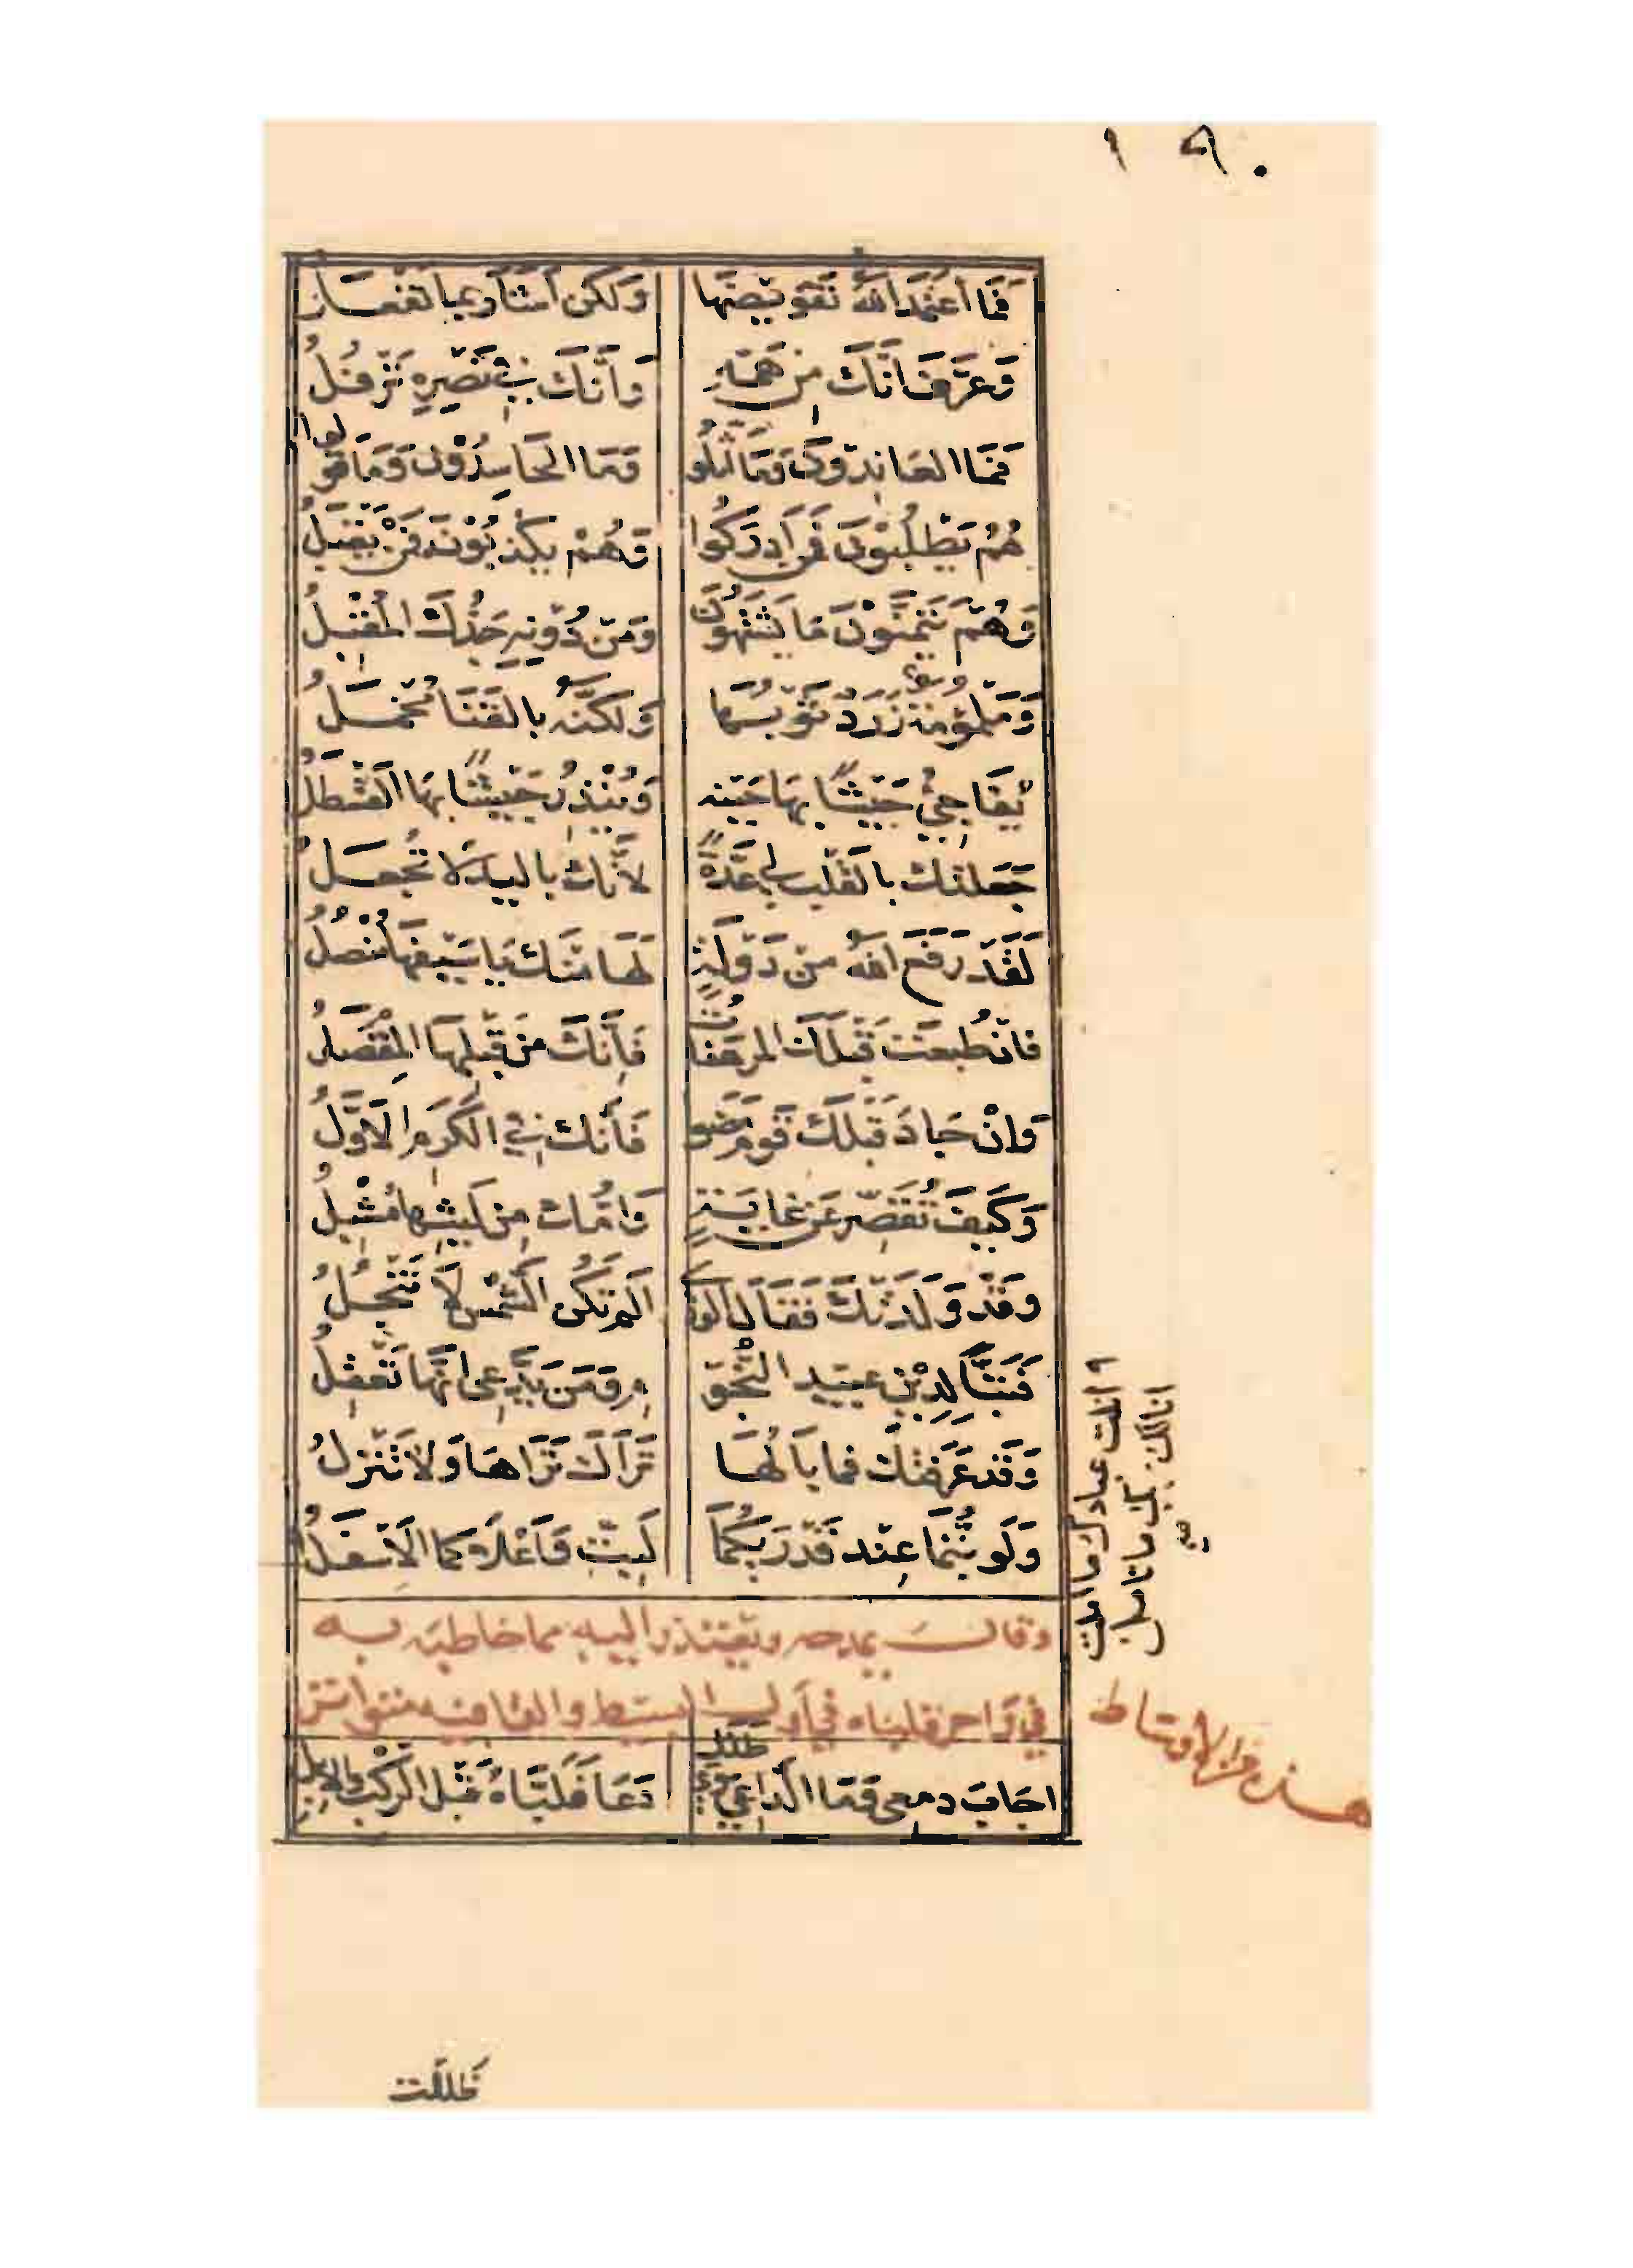 ١٩٠
فَمَا اعْتَمَدَ اللهُ تَقْوِيضَهَا وَلَكِنْ أَشَارَ بِمَا تَفْعَلُ
وَعَرَّفَ أَنَّكَ مِنْ هَمِّهِ وَأَنَّكَ فِي نَصْرِهِ تَرْفُلُ
فَمَا العَانِدُونَ وَمَا أَثَّلُوا وَمَا الحَاسِدُونَ وَمَا قَوَّلُوا
هُمُ يَطْلُبُونَ فَمَنْ أَدْرَكُوا وَهُمْ يَكْذِبُونَ فَمَنْ يَقْبَلُ
وَهُمْ يَتَمَنَّوْنَ مَا يَشْتَهُونَ وَمِنْ دُونِهِ جَدُّكَ المُقْبِلُ
وَمَلْمُومَةٌ زَرَدٌ ثَوْبُهَا وَلَكِنَّهُ بِالقَنَا مُخْمَلُ
يُفَاجِئُ جَيْشًا بِهَا حَيْنُهُ وَيُنْذِرُ جَيْشًا بِهَا القَسْطَلُ
جَعَلْتُكَ بِالقَلْبِ لِي عُدَّةً لِأَنَّكَ بِاليَدِ لَا تُجْعَلُ
لَقَدْ رَفَعَ اللهُ مِنْ دَوْلَةٍ لَهَا مِنْكَ يَا سَيْفَهَا مُنْصُلُ
فَإِنْ طُبِعَتْ قَبْلَكَ المُرْهَفَاتُ فَإِنَّكَ مِنْ قَبْلِهَا المِقْصَلُ
وَإِنْ جَادَ قَبْلَكَ قَوْمٌ مَضَوْا فَإِنَّكَ فِي الكَرَمِ الأَوَّلُ
وَكَيْفَ تُقَصِّرُ عَنْ غَايَةٍ وَأُمُّكَ مِنْ لَيْثِهَا مُشْبِلُ
وَقَدْ وَلَدَتْكَ فَقَالَ الوَرَى أَلَمْ تَكُنِ الشَّمْسُ لَا تُنْجَلُ
فَتَبًّا لِدِينِ عَبِيدِ النُّجُومِ وَمَنْ يَدَّعِي أَنَّهَا تَعْقِلُ
وَقَدْ عَرَفَتْكَ فَمَا بَالُهَا تَرَاكَ تَرَاهَا وَلَا تَنْزِلُ
وَلَوْ بِتُّمَا عِنْدَ قَدْرَيْكُمَا لَبِتَّ وَأَعْلَاكُمَا الأَسْفَلُ
أنلت عبادك ما أملت
أنالك ربك ما تأمل
وقال يمدحه ويعتذر إليه مما خاطبه به
في وا حر قلباه في أول البسيط والقافية متواتر
هذه من الأوساط
أَجَابَ دَمْعِي وَمَا الدَّاعِي سِوَى طَلَلِ دَعَا فَلَبَّاهُ قَبْلَ الرَّكْبِ وَالإِبِلِ
ظللت